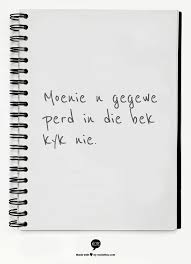 Moenie n gegewe
perd in die bek
kyk nie.